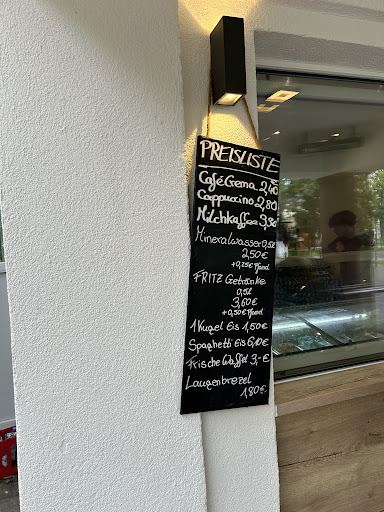 PREISLISTE
Café Crema 2,40€
Cappuccino 2,80
Milchkaffee 3,30
Mineralwasser 0,5l
2,50€
+0,25€ Pfand
FRITZ Getränke
0,5l
3,60€
+0,50€ Pfand
1 Kugel Eis 1,50€
Spaghetti Eis 6,10€
Frische Waffel 3,-€
Laugenbrezel
1,80€